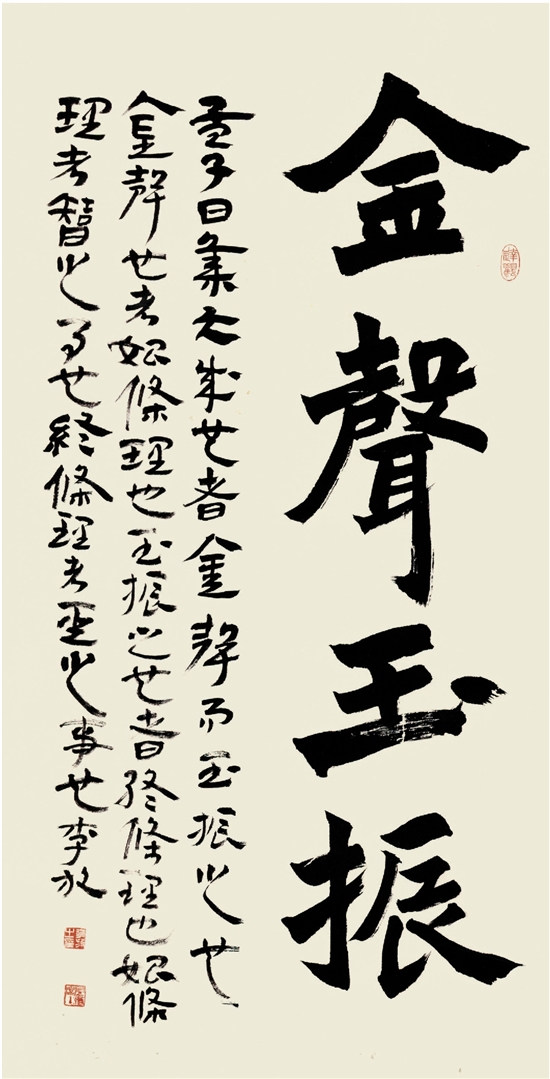 金聲玉振
孟子曰集大成也者金聲而玉振之也
金聲也者始條理也玉振之也者終條理也始條
理者智之事也終條理者聖之事也李放